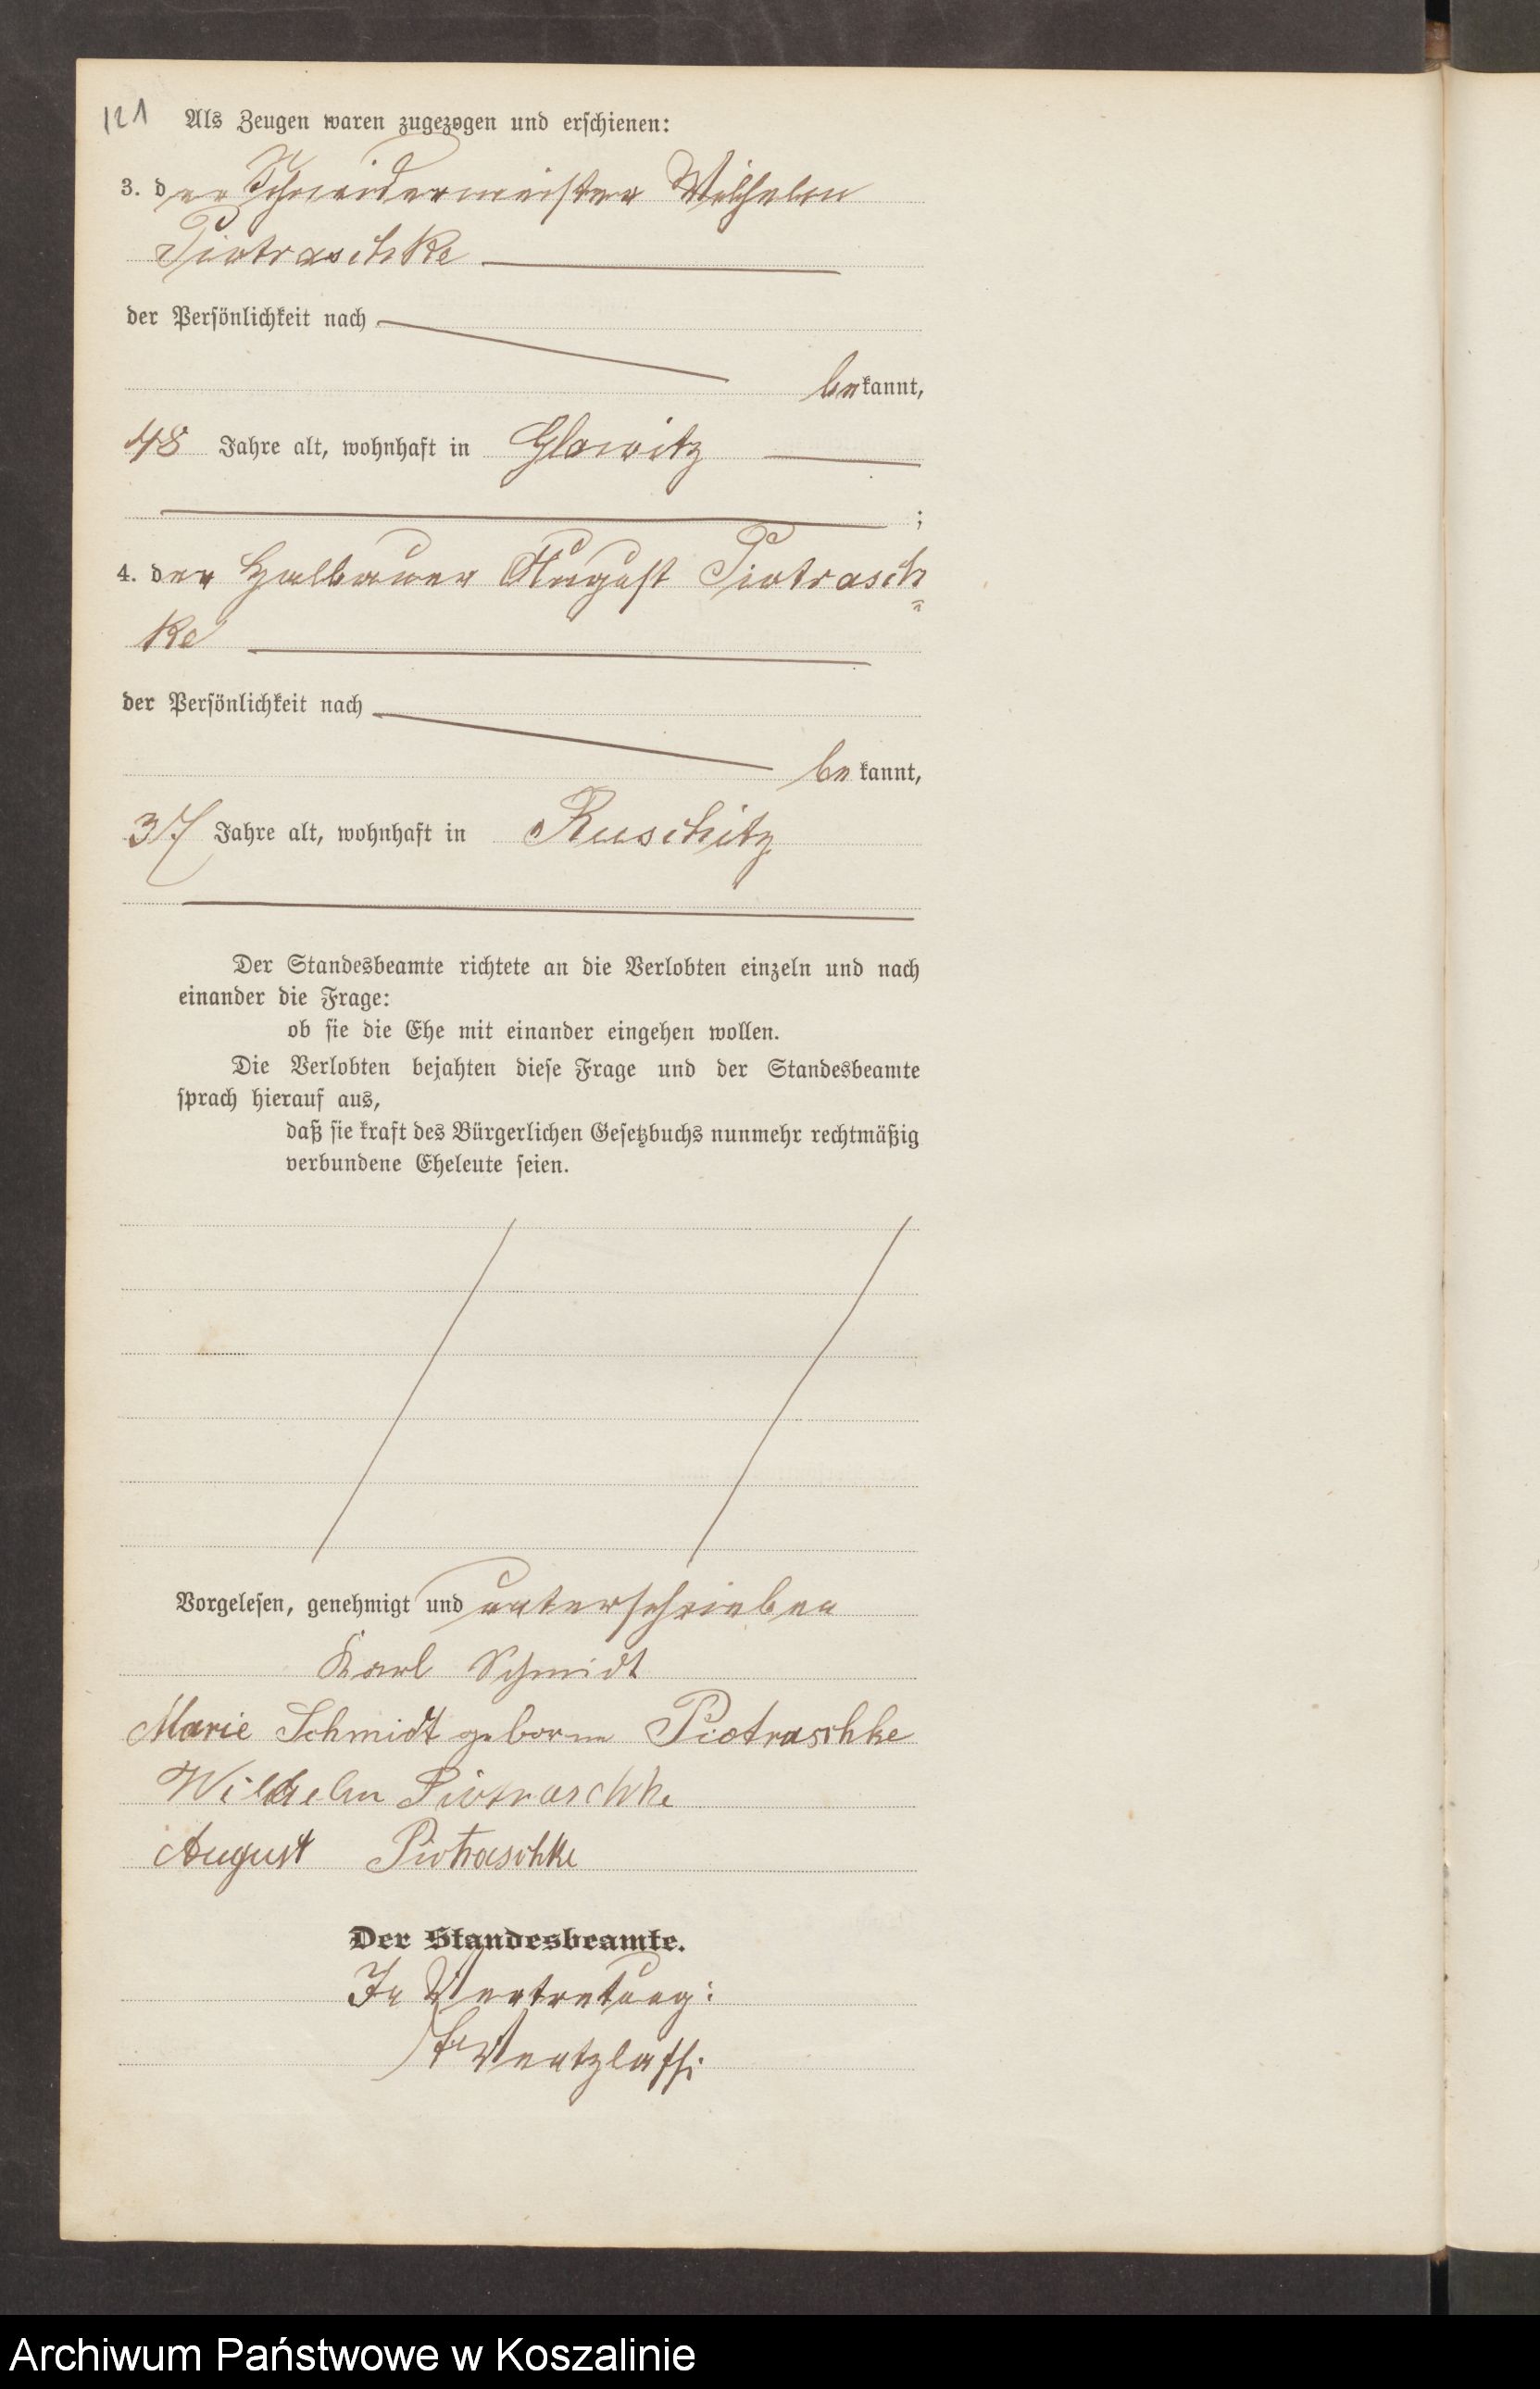 121 Als Zeugen waren zugezogen und erschienen:
3. der Schneidermeister Wilhelm
Piotraschke
der Persönlichkeit nach
bekannt,
48 Jahre alt, wohnhaft in Glowitz
;
4. der Halbauer August Piotrasch=
ke
der Persönlichkeit nach
bekannt,
37 Jahre alt, wohnhaft in Ruschitz
Der Standesbeamte richtete an die Verlobten einzeln und nach
einander die Frage:
ob sie die Ehe mit einander eingehen wollen.
Die Verlobten bejahten diese Frage und der Standesbeamte
sprach hierauf aus,
daß sie kraft des Bürgerlichen Gesetzbuchs nunmehr rechtmäßig
verbundene Eheleute seien.
Vorgelesen, genehmigt und unterschrieben
Karl Schmidt
Marie Schmidt geborne Piotraschke
Wilhelm Piotraschke
August Piotraschke
Der Standesbeamte.
In Vertretung:
Wentzlaff.
Archiwum Państwowe w Koszalinie